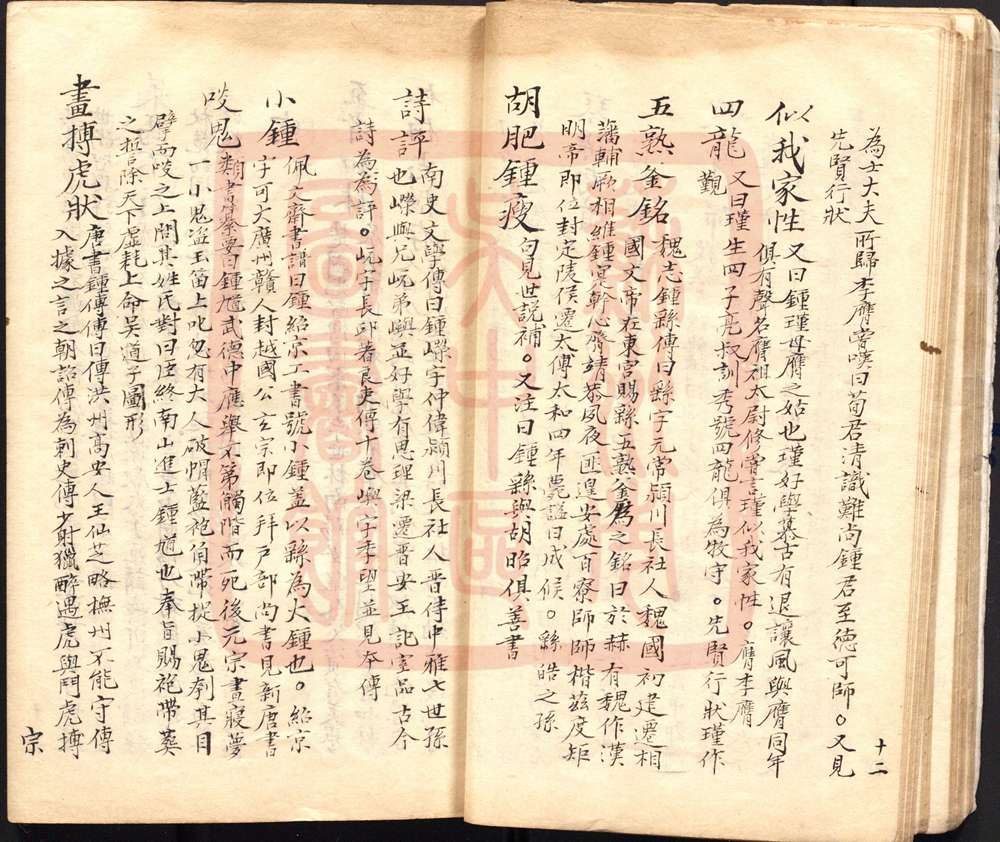 為士大夫所歸李膺嘗嘆曰荀君清識難尚鍾君至徳可師。又見
先賢行狀
似我家性 又曰鍾瑾母膺之姑也瑾好學慕古有退讓風與膺同年
俱有聲名膺祖太尉修嘗言瑾似我家性。膺李膺
四龍 又曰瑾生四子亮叔訓秀號四龍俱為牧守。先賢行狀瑾作
觀
五熟釜銘 魏志鍾繇傳曰繇字元常潁川長社人魏國初建遷相
國文帝在東宮賜繇五熟釜為之銘曰於赫有魏作漢
藩輔厥相維鍾寔幹心膂靖恭夙夜匪遑安處百寮師師楷茲度矩
明帝即位封定陵侯遷太傅太和四年薨諡曰成侯。繇皓之孫
胡肥鍾瘦 句見世說補。又注曰鍾繇與胡昭俱善書
詩評 南史文學傳曰鍾嶸字仲偉潁川長社人晉侍中雅七世孫
也嶸與兄岏弟嶼並好學有思理梁遷晉安王記室品古今
詩為為評。岏字長邱著良吏傳十卷嶼字季望並見本傳
小鍾 佩文齋書譜曰鍾紹京工書號小鍾蓋以繇為大鍾也。紹京
字可大廣州贛人封越國公玄宗即位拜戸部尚書見新唐書
啖鬼 類書纂要曰鍾馗武德中應舉不第觸階而死後元宗晝寢夢
一小鬼盜玉笛上叱忽有大人破帽藍袍角帶捉小鬼刳其目
擘而啖之上問其姓氏對曰臣終南山進士鍾馗也奉旨賜袍帶葬
之誓除天下虛耗上命吳道子圖形
畫搏虎狀 唐書鍾傳傳曰傳洪州高安人王仙芝略撫州不能守傳
入據之言之朝詔傳為刺史傳少射獵醉遇虎與鬥虎搏
十二
宗